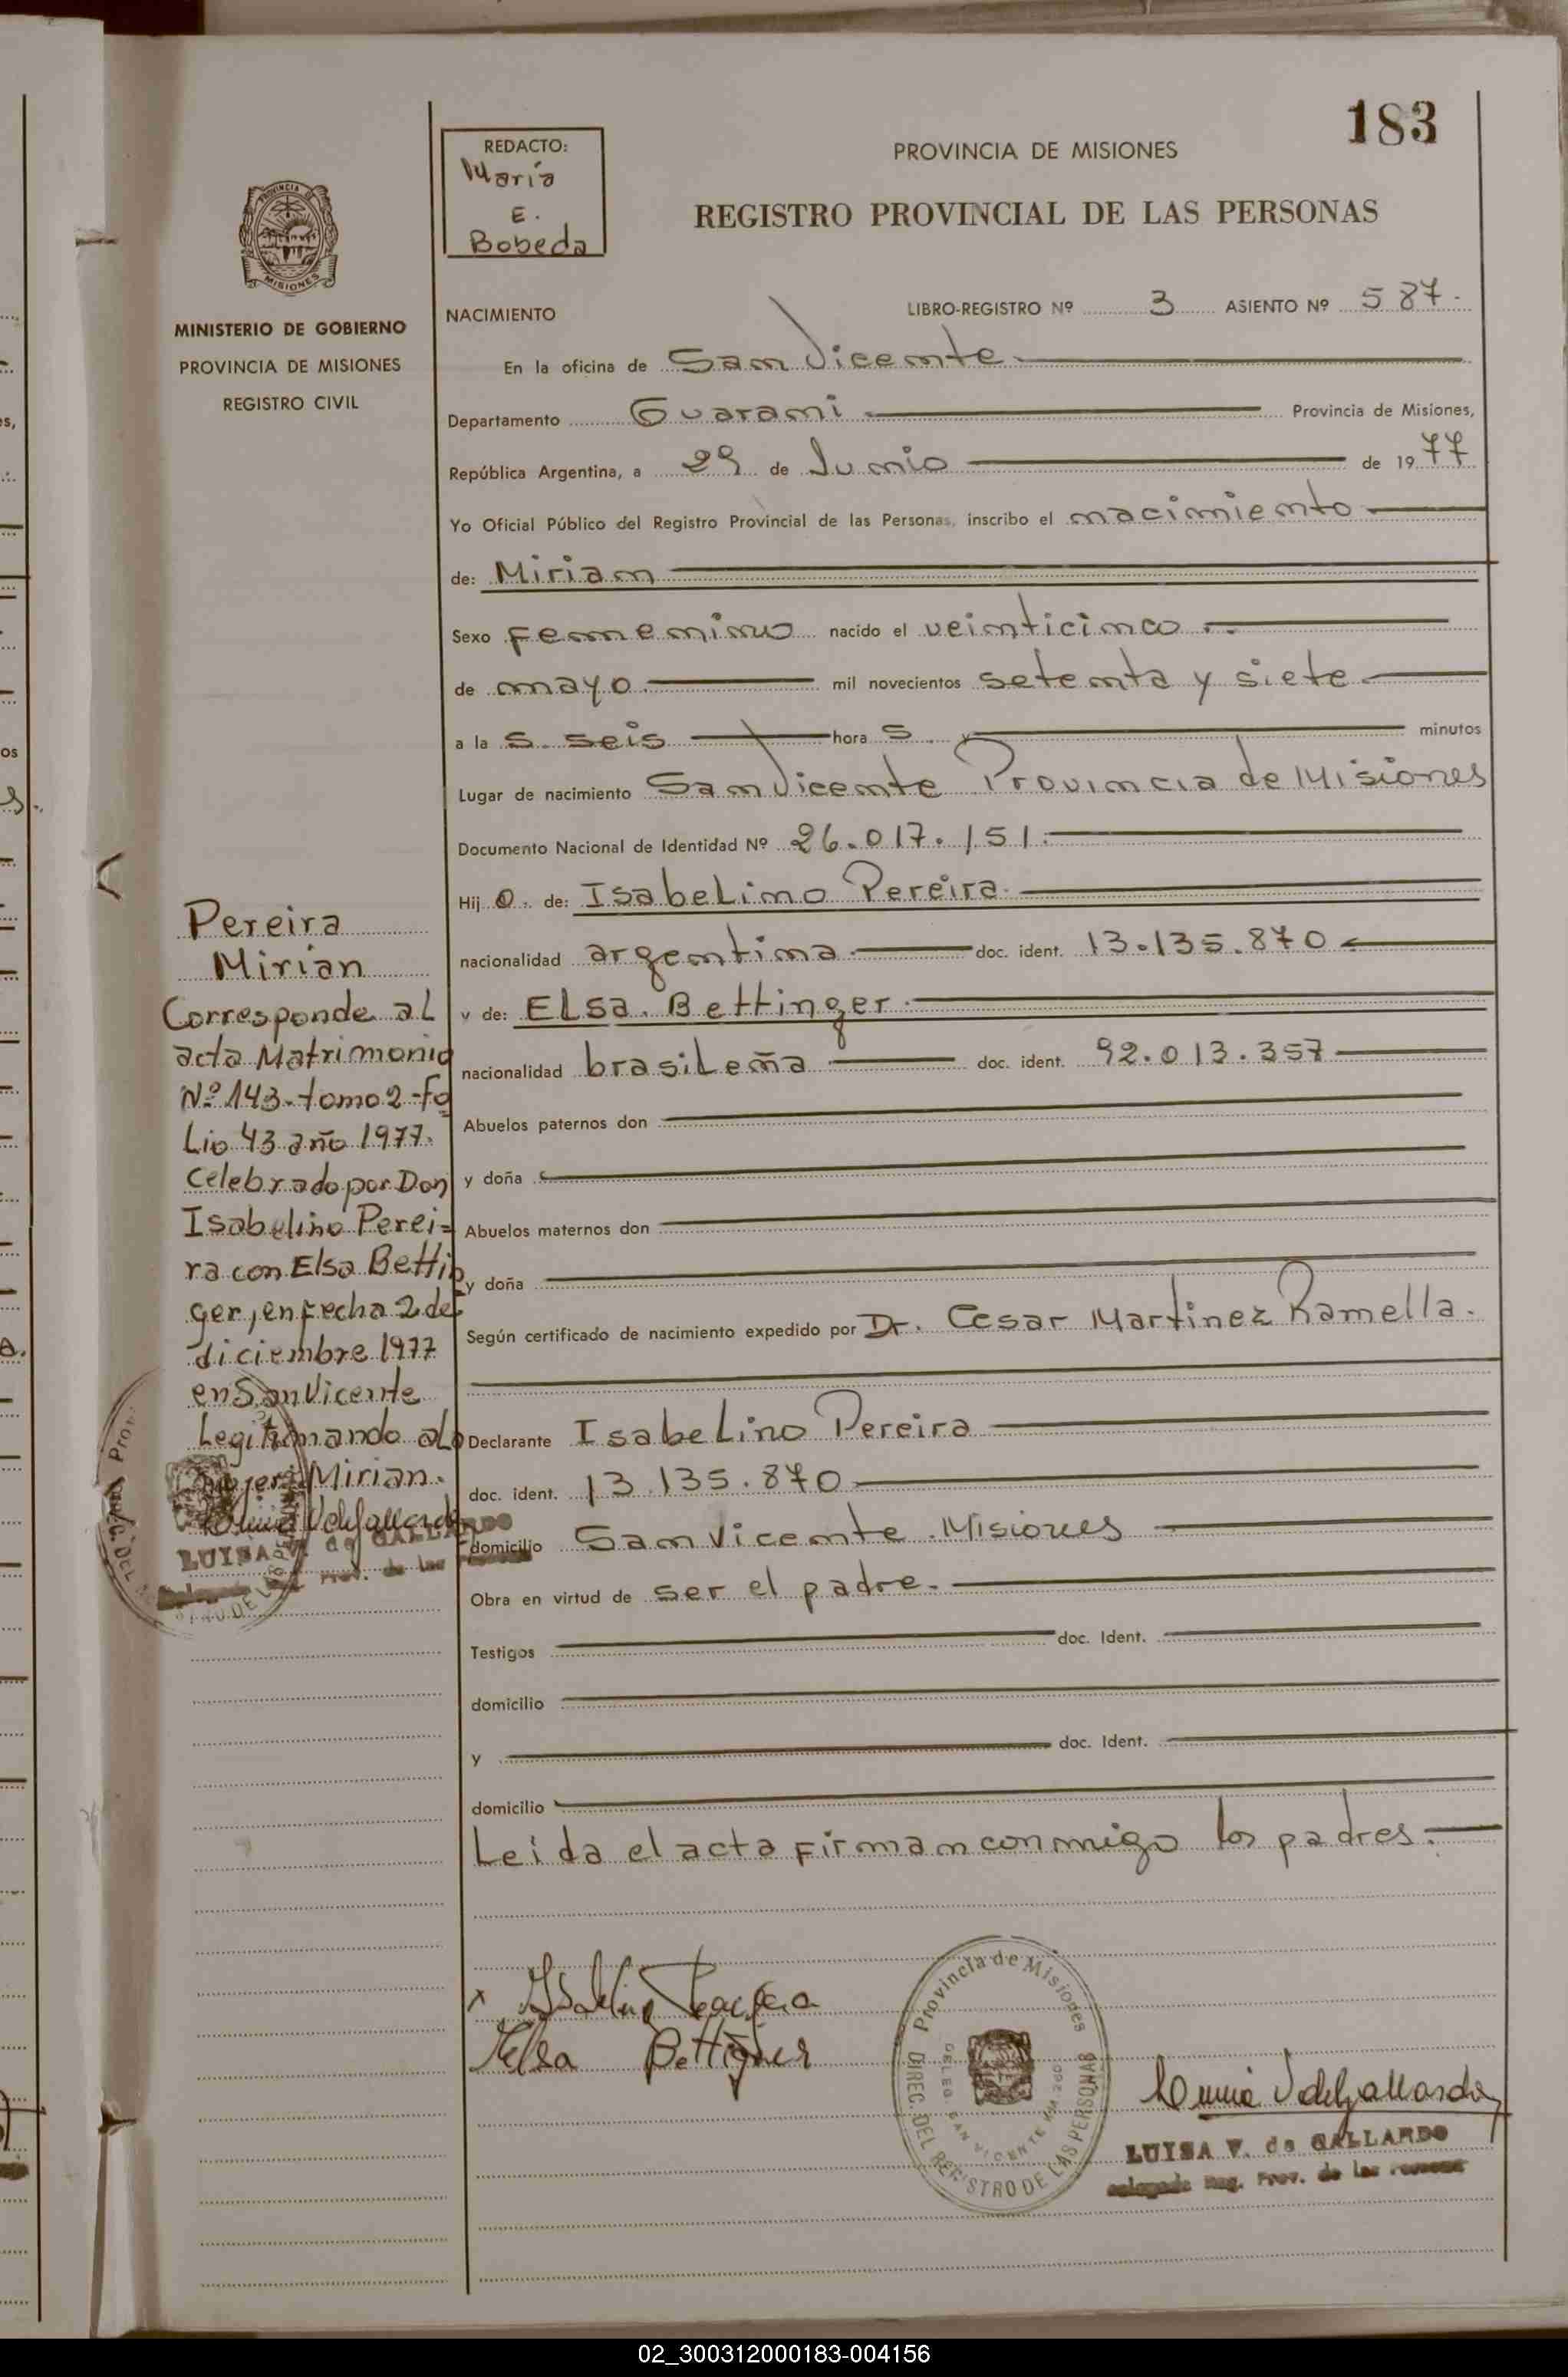 183
REDACTO:
Maria
E.
Bobeda
PROVINCIA DE MISIONES
REGISTRO PROVINCIAL DE LAS PERSONAS
MISIONES
MINISTERIO DE GOBIERNO
PROVINCIA DE MISIONES
REGISTRO CIVIL
NACIMIENTO
LIBRO-REGISTRO Nº 3 ASIENTO Nº 587.
En la oficina de San Vicente
Departamento Guarani Provincia de Misiones,
República Argentina, a 29 de Junio de 1977
Yo Oficial Público del Registro Provincial de las Personas, inscribo el nacimiento
de: Miriam
Sexo femenino nacido el veinticinco
de mayo mil novecientos setenta y siete
a la s seis hora s y minutos
Lugar de nacimiento San Vicente Provincia de Misiones
Documento Nacional de Identidad Nº 26.017.151.
Hij o. de: Isabelino Pereira
nacionalidad argentina doc. ident. 13.135.870
y de: Elsa Bettinger
nacionalidad brasileña doc. ident. 92.013.357
Abuelos paternos don
y doña
Abuelos maternos don
y doña
Según certificado de nacimiento expedido por Dr. Cesar Martinez Ramella.
Declarante Isabelino Pereira
doc. ident. 13.135.870
domicilio San Vicente Misiones
Obra en virtud de ser el padre.
Testigos doc. Ident.
domicilio
y doc. Ident.
domicilio
Leida el acta firman conmigo los padres.
Pereira
Mirian
Corresponde al
acta Matrimonio
Nº 143-tomo 2-Fo
Lio 43 año 1977.
Celebrado por Don
Isabelino Perei=
ra con Elsa Bettin
ger, en fecha 2 de
diciembre 1977
en San Vicente
Legitimando a La
Mirian.
LUISA V. de GALLARDO
Prov. de las
Elsa Bettinger
Provincia de Misiones
DIREC. DEL REGISTRO DE LAS PERSONAS
DELEG. SAN VICENTE
LUISA V. de GALLARDO
Delegada Reg. Prov. de las Personas
02_300312000183-004156